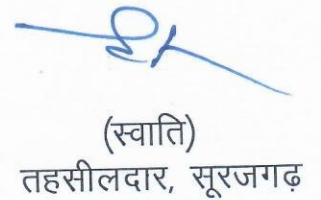 (स्वाति)
तहसीलदार, सूरजगढ़